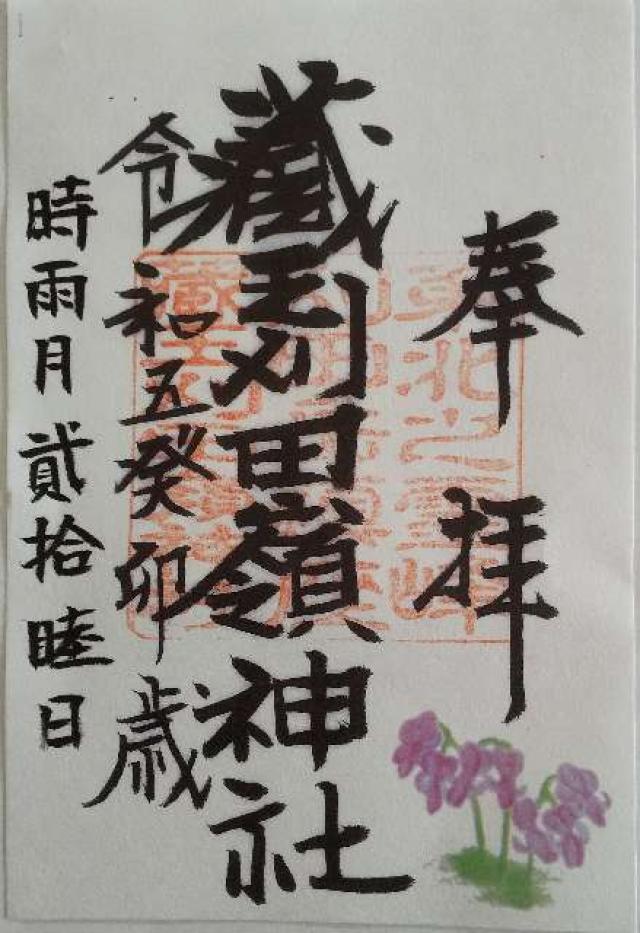 奉拝
藏王刈田嶺神社
令和五癸卯歳
時雨月貳拾睦日